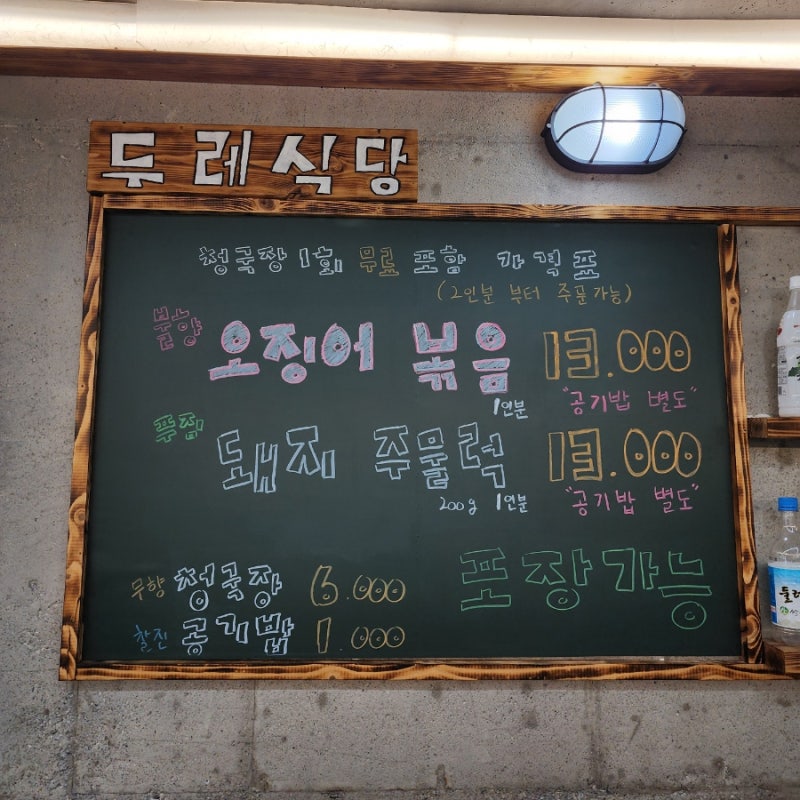 두레식당
청국장 1회 무료 포함 가격표
(2인분 부터 주문가능)
불향 오징어 볶음 13.000
1인분 "공기밥 별도"
푸짐 돼지 주물럭 13.000
200g 1인분 "공기밥 별도"
무향 청국장 6.000
찰진 공기밥 1.000
포장가능